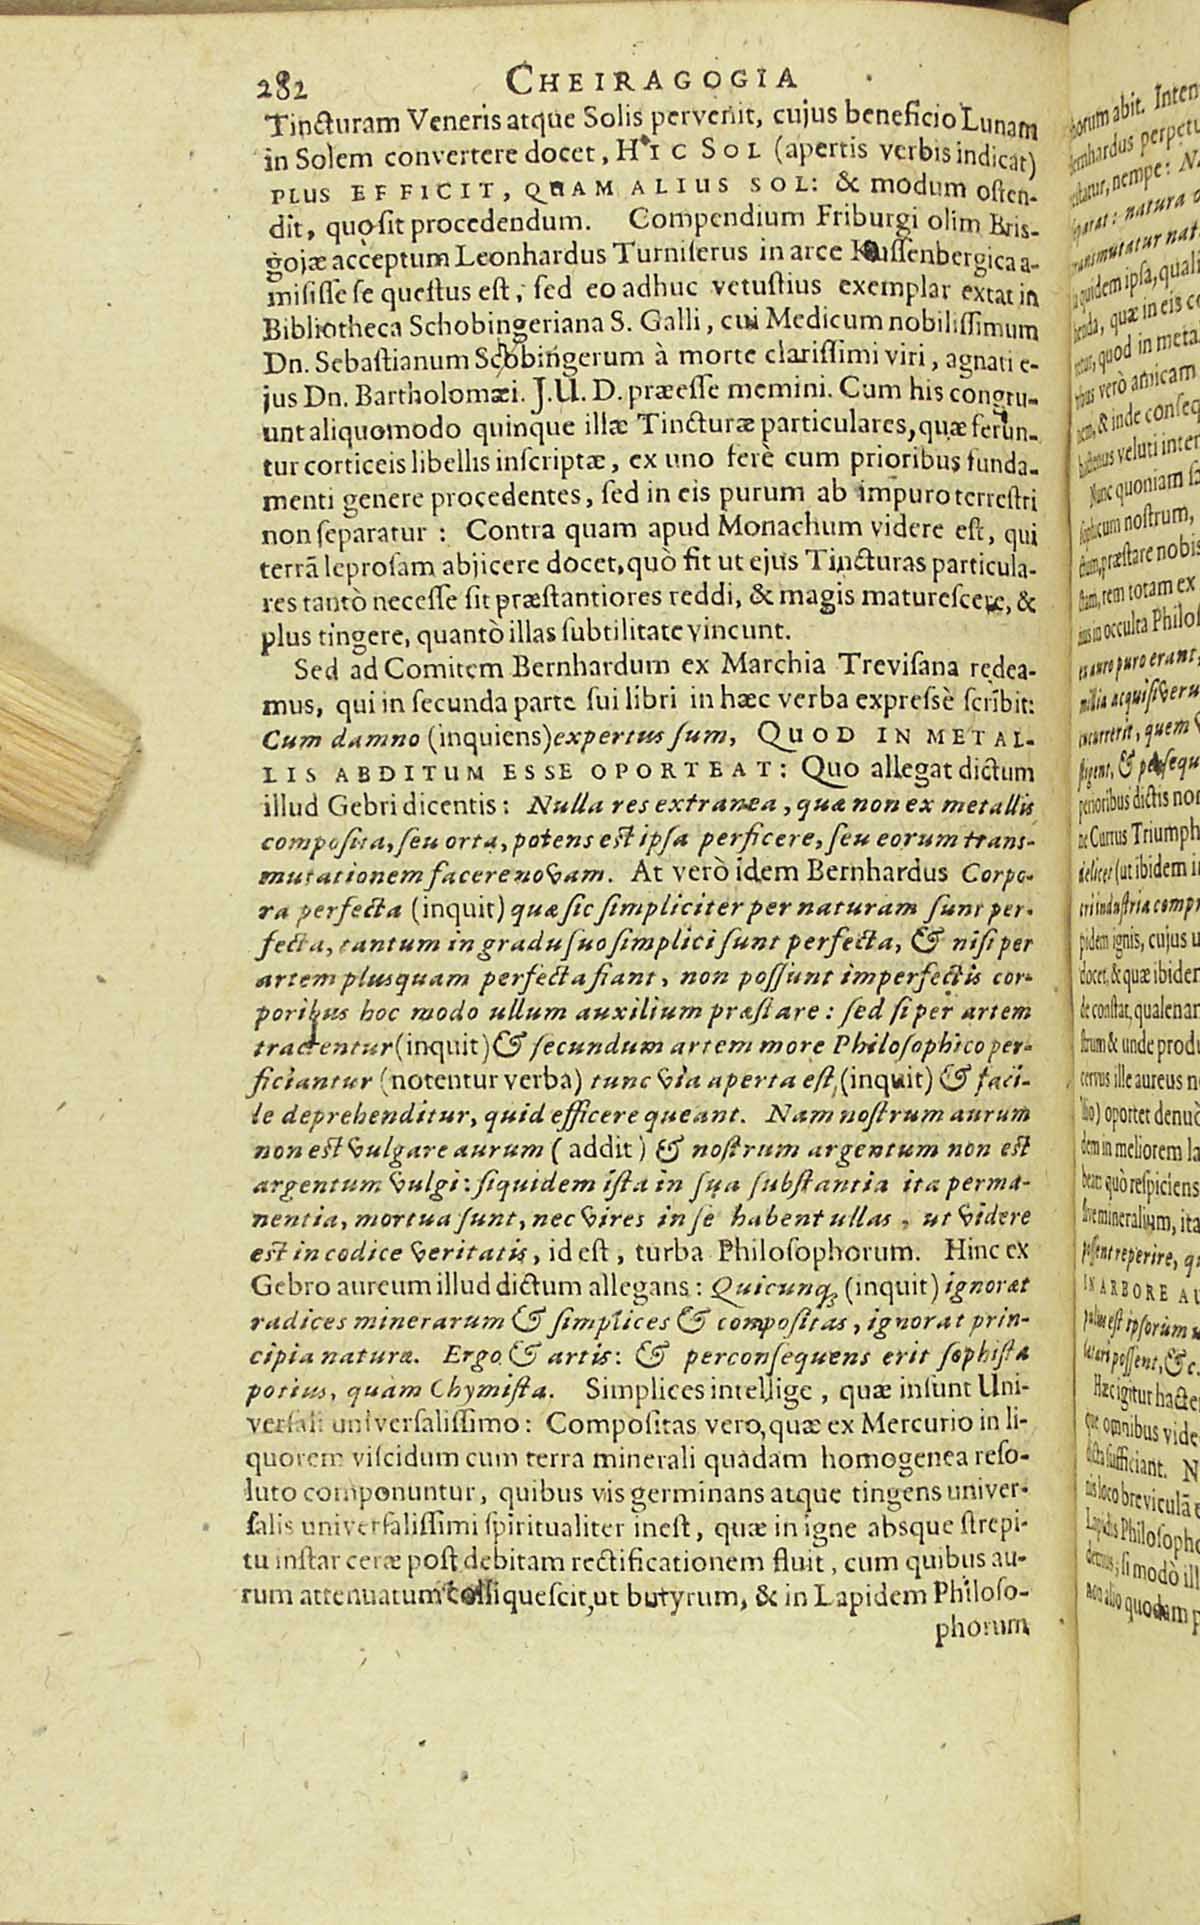 282 CHEIRAGOGIA
Tincturam Veneris atque Solis pervenit, cujus beneficio Lunam
in Solem convertere docet, HIC SOL (apertis verbis indicat)
PLUS EFFICIT, QUAM ALIUS SOL: & modum osten-
dit, quo sit procedendum. Compendium Friburgi olim Bris-
gojæ acceptum Leonhardus Turniserus in arce Kussenbergica a-
misisse se questus est, sed eo adhuc vetustius exemplar extat in
Bibliotheca Schobingeriana S. Galli, cui Medicum nobilissimum
Dn. Sebastianum Scobingerum à morte clarissimi viri, agnati e-
jus Dn. Bartholomæi. J.U.D. præesse memini. Cum his congru-
unt aliquomodo quinque illæ Tincturæ particulares, quæ ferun-
tur corticeis libellis inscriptæ, ex uno ferè cum prioribus funda-
menti genere procedentes, sed in eis purum ab impuro terrestri
non separatur: Contra quam apud Monachum videre est, qui
terrã leprosam abjicere docet, quò fit ut ejus Tincturas particula-
res tantò necesse sit præstantiores reddi, & magis maturescere, &
plus tingere, quantò illas subtilitate vincunt.
Sed ad Comitem Bernhardum ex Marchia Trevisana redea-
mus, qui in secunda parte sui libri in hæc verba expressè scribit:
Cum damno (inquiens) expertus sum, QUOD IN METAL-
LIS ABDITUM ESSE OPORTEAT: Quo allegat dictum
illud Gebri dicentis: Nulla res extranea, quæ non ex metallis
composita, seu orta, potens est ipsa perficere, seu eorum trans-
mutationem facere novam. At verò idem Bernhardus Corpo-
ra perfecta (inquit) quæ sic simpliciter per naturam sunt per-
fecta, tantum in gradu suo simplici sunt perfecta, & nisi per
artem plusquam perfecta fiant, non possunt imperfectis cor-
poribus hoc modo ullum auxilium præstare: sed si per artem
tractentur (inquit) & secundum artem more Philosophico per-
ficiantur (notentur verba) tunc via aperta est, (inquit) & faci-
le deprehenditur, quid efficere queant. Nam nostrum aurum
non est vulgare aurum (addit) & nostrum argentum non est
argentum vulgi: siquidem ista in sua substantia ita perma-
nentia, mortua sunt, nec vires in se habent ullas, ut videre
est in codice veritatis, id est, turba Philosophorum. Hinc ex
Gebro aureum illud dictum allegans: Quicunq; (inquit) ignorat
radices minerarum & simplices & compositas, ignorat prin-
cipia naturæ. Ergo & artis: & per consequens erit sophista
potius, quàm Chymista. Simplices intellige, quæ insunt Uni-
versali universalissimo: Compositas vero, quæ ex Mercurio in li-
quorem viscidum cum terra minerali quadam homogenea reso-
luto componuntur, quibus vis germinans atque tingens univer-
salis universalissimi spiritualiter inest, quæ in igne absque strepi-
tu instar ceræ post debitam rectificationem fluit, cum quibus au-
rum attenuatum colliquescit, ut butyrum, & in Lapidem Philoso-
phorum
horum abit.
bernhardus perpetu
nempe:
natura
quidem ipsa, quali
quæ in eis
quod in meta
verò amicam
& inde conseq
veluti inter
Nunc quoniam
nostrum,
præstare nobis
rem totam ex
in occulta Philos
ex auro puro erant,
millia acquisiveru
quem
perioribus dictis non
Currus Triumph
(ut ibidem
industria compr
pidem ignis, cujus
docet, & quæ ibidem
de constat, qualenam
& unde produ
cervus ille aureus
oportet denuò
dem in meliorem
quò respiciens
minerialium, ita
possent reperire,
IN ARBORE AU
est ipsorum
possent, & c.
Hæc igitur hacte
que omnibus vide
dicta sufficiant.
loco breviculã
Lapidis Philosoph
si modò ill
non alio quodam p